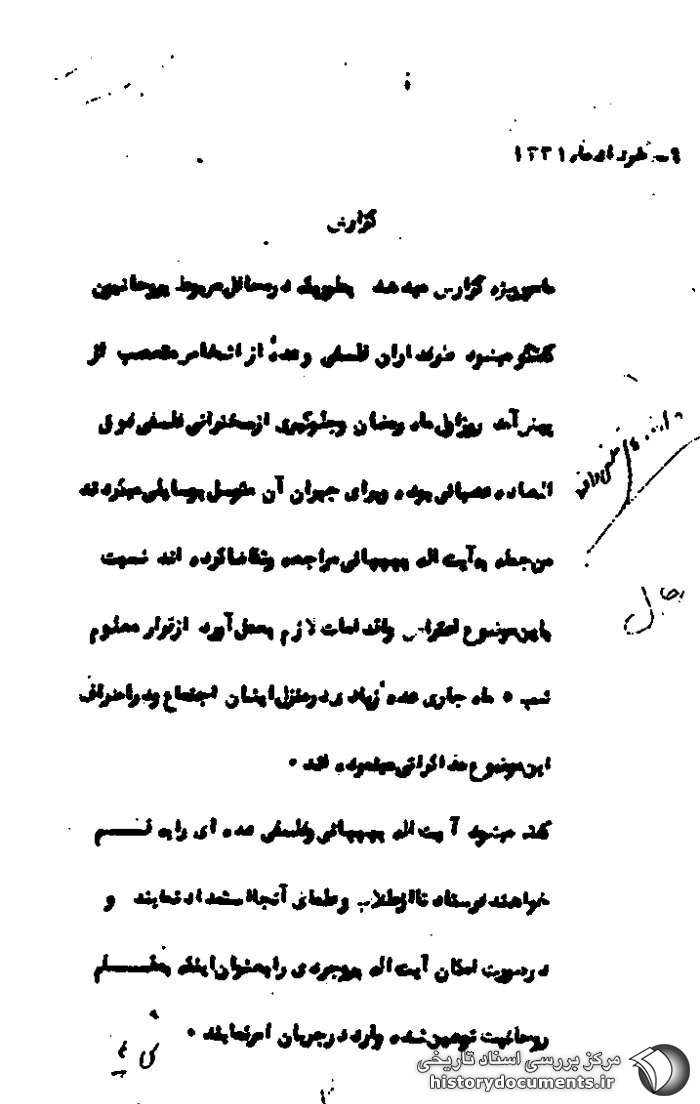 ۹ - خرداد ماه ۱۳۳۱
گزارش
مامور ویژه گزارش میدهد بطوریکه در محافل مربوط بروحانیون
گفتگو میشود طرفداران فلسفی و عدهٔ از اشخاص متعصب از
پیش آمد روز اول ماه رمضان و جلوگیری از سخنرانی فلسفی فوق
العاده عصبانی بوده و برای جبران آن متوسل بوسایلی میگردند
من جمله به آیت اله بهبهانی مراجعه و تقاضا کرده اند نسبت
باین موضوع اعتراض و اقدامات لازم بعمل آورد از قرار معلوم
شب ماه جاری عدهٔ زیادی در منزل ایشان اجتماع و در اطراف
این موضوع مذاکراتی مینموده اند .
گفته میشود آیت اله بهبهانی و فلسفی عده ای را به قم
خواهند فرستاد تا از طلاب و علمای آنجا استمداد نمایند و
در صورت امکان آیت اله بروجردی را بعنوان اینکه بمقام
روحانیت توهین شده وارد در جریان امر نمایند .
مرکز بررسی اسناد تاریخی
historydocuments.ir